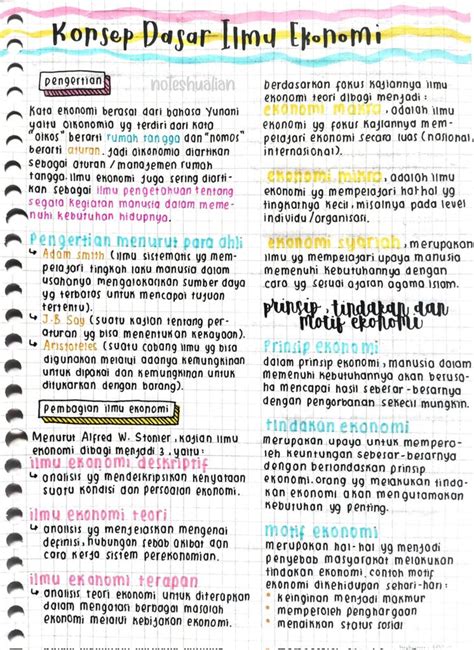 Konsep Dasar Ilmu Ekonomi
pengertian
noteshualian
Kata ekonomi berasal dari bahasa Yunani
yaitu oikonomia yg terdiri dari kata
"oikos" berarti rumah tangga dan "nomos"
berarti aturan. jadi oikonomia diartikan
sebagai aturan / manajemen rumah
tangga. Ilmu ekonomi juga sering diarti-
kan sebagai ilmu pengetahuan tentang
segala kegiatan manusia dalam meme-
nuhi kebutuhan hidupnya.
Pengertian menurut para ahli
↳ Adam Smith (ilmu sistematic yg mem-
pelajari tingkah laku manusia dalam
usahanya mengalokasikan sumber daya
yg terbatas untuk mencapai tujuan
tertentu).
↳ J.B Say (suatu kajian tentang per-
aturan yg bisa menentukan kekayaan).
↳ Aristoteles (suatu cabang ilmu yg bisa
digunakan melalui adanya kemungkinan
untuk dipakai dan kemungkinan untuk
ditukarkan dengan barang).
Pembagian ilmu ekonomi
Menurut Alfred W. Stonier, kajian ilmu
ekonomi dibagi menjadi 3, yaitu:
ilmu ekonomi deskriptif
↳ analisis yg mendeskripsikan kenyataan
suatu kondisi dan persoalan ekonomi.
ilmu ekonomi teori
↳ analisis yg menjelaskan mengenai
definisi, hubungan sebab akibat dan
cara kerja sistem perekonomian.
ilmu ekonomi terapan
↳ analisis teori ekonomi untuk diterapkan
dalam mengatasi berbagai masalah
ekonomi melalui kebijakan ekonomi.
berdasarkan fokus kajiannya ilmu
ekonomi teori dibagi menjadi:
ekonomi makro, adalah ilmu
ekonomi yg fokus kajiannya mem-
pelajari ekonomi secara luas (nasional,
internasional).
ekonomi mikro, adalah ilmu
ekonomi yg mempelajari hal-hal yg
tingkatnya kecil, misalnya pada level
individu/organisasi.
ekonomi syariah, merupakan
ilmu yg mempelajari upaya manusia
memenuhi kebutuhannya dengan
cara yg sesuai ajaran agama Islam.
prinsip, tindakan dan
motif ekonomi
Prinsip ekonomi
dalam prinsip ekonomi, manusia dalam
memenuhi kebutuhannya akan berusa-
ha mencapai hasil sebesar-besarnya
dengan pengorbanan sekecil mungkin.
tindakan ekonomi
merupakan upaya untuk mempero-
leh keuntungan sebesar-besarnya
dengan berlandaskan prinsip
ekonomi. orang yg melakukan tinda-
kan ekonomi akan mengutamakan
kebutuhan yg penting.
motif ekonomi
merupakan hal-hal yg menjadi
penyebab masyarakat melakukan
tindakan ekonomi. contoh motif
ekonomi dikehidupan sehari-hari:
• keinginan menjadi makmur
• memperoleh penghargaan
• menaikkan status sosial